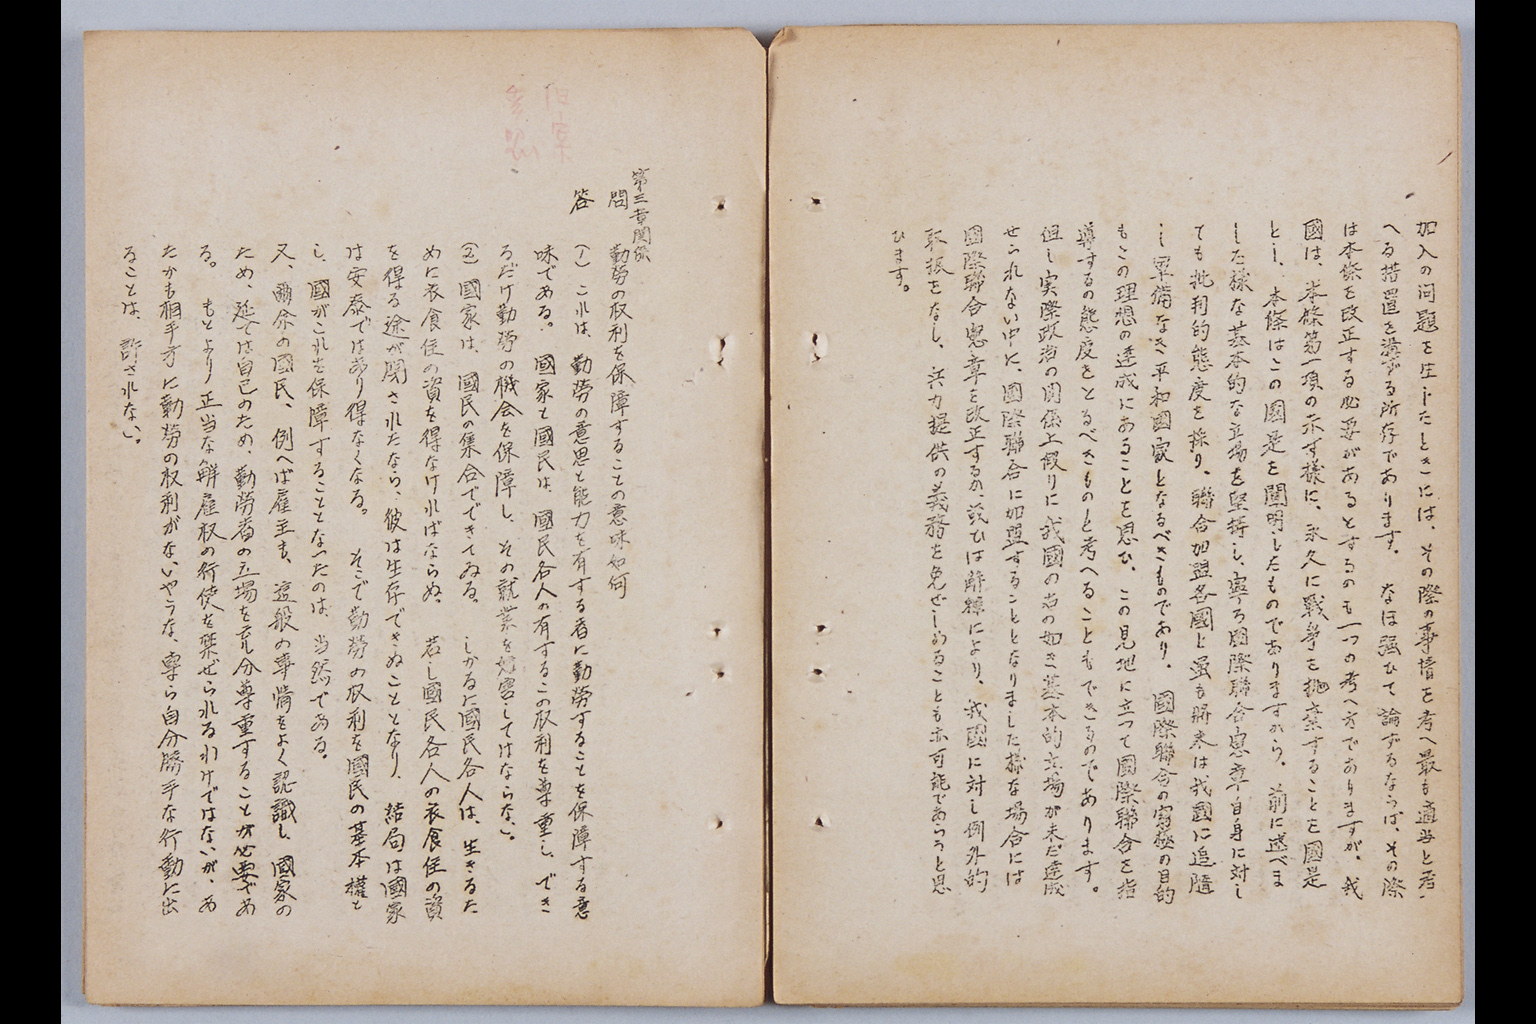 加入の問題を生じたときには、その際の事情を考へ最も適当と考
へる措置を講ずる所存であります。なほ强ひて論ずるならば、その際
は本條を改正する必要があるとするのも一つの考へ方でありますが、我
國は、本條第一項の示す様に、永久に戰爭を抛棄することを國是
とし、本條はこの國是を闡明したものでありますから、前に述べま
した様な基本的な立場を堅持し、寧ろ國際聯合憲章自身に対し
ても批判的態度を採り、聯合加盟各國と雖も將来は我國に追隨
し軍備なき平和國家となるべきものであり、國際聯合の窮極の目的
もこの理想の達成にあることを思ひ、この見地に立つて國際聯合を指
導するの態度をとるべきものと考へることもできるのであります。
但し実際政治の関係上假りに我國の右の如き基本的立場が未だ達成
せられない中に、國際聯合に加盟することとなりました様な場合には
國際聯合憲章を改正するか、或ひは解釋により、我國に対し例外的
取扱をなし、兵力提供の義務を免ぜしめることも亦可能であらうと思
ひます。
第三章関係
問 勤勞の权利を保障することの意味如何
答 (一) これは、勤勞の意思と能力を有する者に勤勞することを保障する意
味である。國家と國民は、國民各人の有するこの权利を尊重し、でき
るだけ勤勞の機会を保障し、その就業を妨害してはならない。
(二) 國家は、國民の集合でできてゐる。しかるに國民各人は、生きるた
めに衣食住の資を得なければならぬ。若し國民各人の衣食住の資
を得る途が閉されたなら、彼は生存できぬこととなり、結局は國家
は安泰ではあり得なくなる。そこで勤勞の权利を國民の基本權と
し、國がこれを保障することとなつたのは、当然である。
又、爾余の國民、例へば雇主も、這般の事情をよく認識し、國家の
ため、延ては自己のため、勤勞者の立場を充分尊重することが必要であ
る。もとより正当な解雇权の行使を禁ぜられるわけではないが、あ
たかも相手方に勤勞の权利がないやうな、専ら自分勝手な行動に出
ることは、許されない。